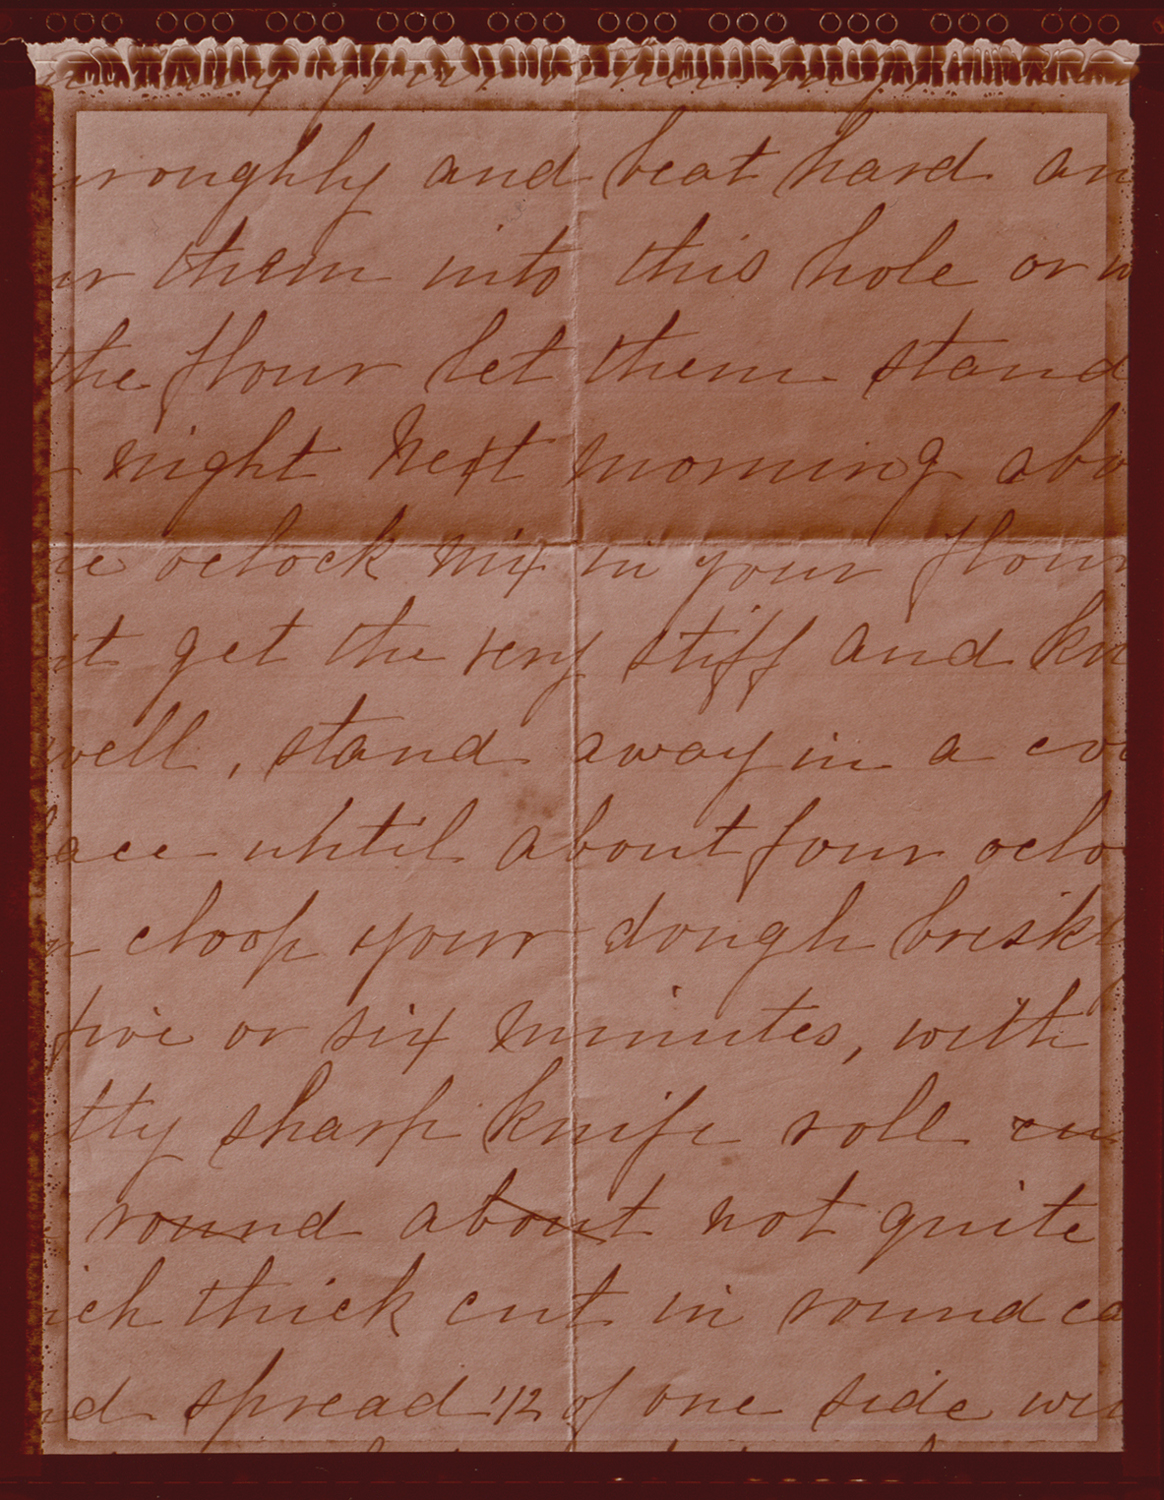 roughly and beat hard an
them into this hole or w
the flour let them stand
night Next morning abo
oclock mix in your flour
it get the very stiff and kn
well, stand away in a coo
lace until about four oclo
cloop your dough brisk
five or six minutes, with
tty sharp knife roll cu
round about not quite
ich thick cut in round ca
nd spread 1/2 of one side wi